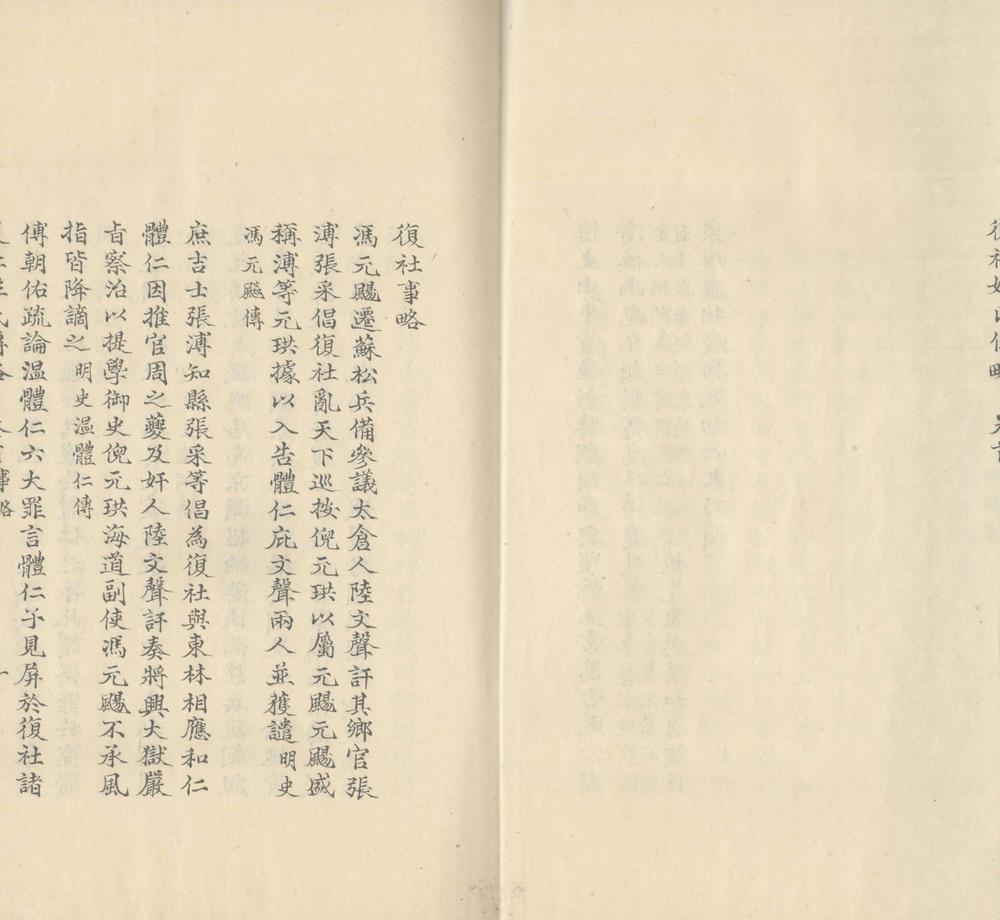 復社
事略
復社事略
馮元颺遷蘇松兵備參議太倉人陸文聲訐其鄉官張
溥張采倡復社亂天下巡按倪元珙以屬元颺元颺盛
稱溥等元珙據以入告體仁庇文聲兩人並獲譴明史
馮元颷傳
庶吉士張溥知縣張采等倡為復社與東林相應和仁
體仁因推官周之夔及奸人陸文聲訐奏將興大獄嚴
旨察治以提學御史倪元珙海道副使馮元颺不承風
指皆降謫之明史溫體仁傳
傅朝佑疏論溫體仁六大罪言體仁子見屏於復社諸